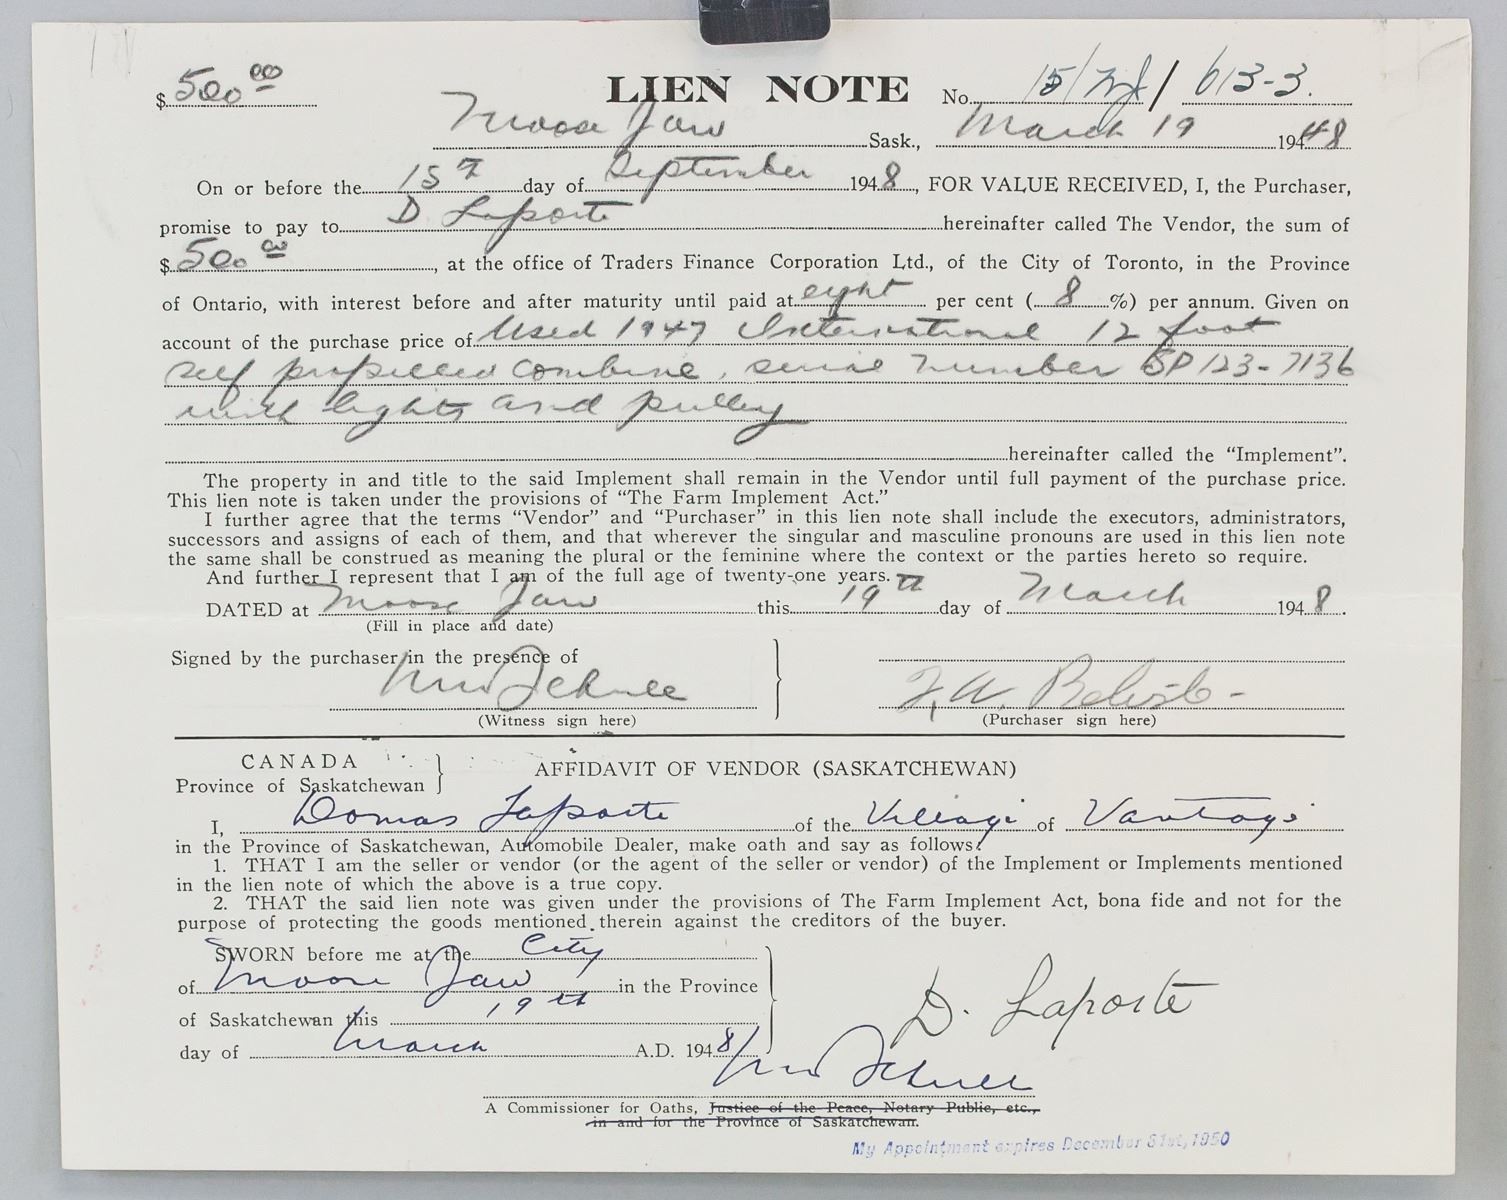 $ 500.00 LIEN NOTE No. 15/MJ/ 613-3.
Moose Jaw Sask., March 19 1948
On or before the 15th day of September 1948, FOR VALUE RECEIVED, I, the Purchaser,
promise to pay to D Laporte hereinafter called The Vendor, the sum of
$ 500.00, at the office of Traders Finance Corporation Ltd., of the City of Toronto, in the Province
of Ontario, with interest before and after maturity until paid at eight per cent (8%) per annum. Given on
account of the purchase price of Used 1947 International 12 foot
self propelled combine, serial number SP 123-7136
with lights and pulley
hereinafter called the “Implement”.
The property in and title to the said Implement shall remain in the Vendor until full payment of the purchase price.
This lien note is taken under the provisions of “The Farm Implement Act.”
I further agree that the terms “Vendor” and “Purchaser” in this lien note shall include the executors, administrators,
successors and assigns of each of them, and that wherever the singular and masculine pronouns are used in this lien note
the same shall be construed as meaning the plural or the feminine where the context or the parties hereto so require.
And further I represent that I am of the full age of twenty-one years.
DATED at Moose Jaw this 19th day of March 1948.
(Fill in place and date)
Signed by the purchaser in the presence of
(Witness sign here) (Purchaser sign here)
CANADA
Province of Saskatchewan
AFFIDAVIT OF VENDOR (SASKATCHEWAN)
I, Domas Laporte of the Village of Vantage
in the Province of Saskatchewan, Automobile Dealer, make oath and say as follows:
1. THAT I am the seller or vendor (or the agent of the seller or vendor) of the Implement or Implements mentioned
in the lien note of which the above is a true copy.
2. THAT the said lien note was given under the provisions of The Farm Implement Act, bona fide and not for the
purpose of protecting the goods mentioned therein against the creditors of the buyer.
SWORN before me at the City
of Moose Jaw in the Province
of Saskatchewan this 19th
day of March A.D. 1948
D. Laporte
A Commissioner for Oaths, Justice of the Peace, Notary Public, etc.,
in and for the Province of Saskatchewan.
My Appointment expires December 31st, 1950